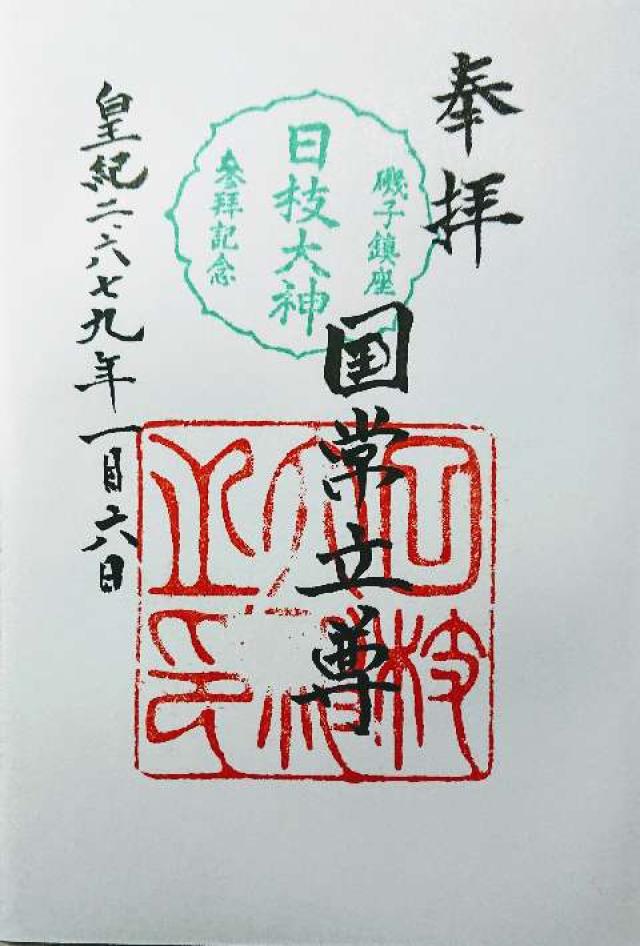 奉拝
磯子鎮座
日枝大神
参拝記念
国常立尊
皇紀二、六七九年一月六日